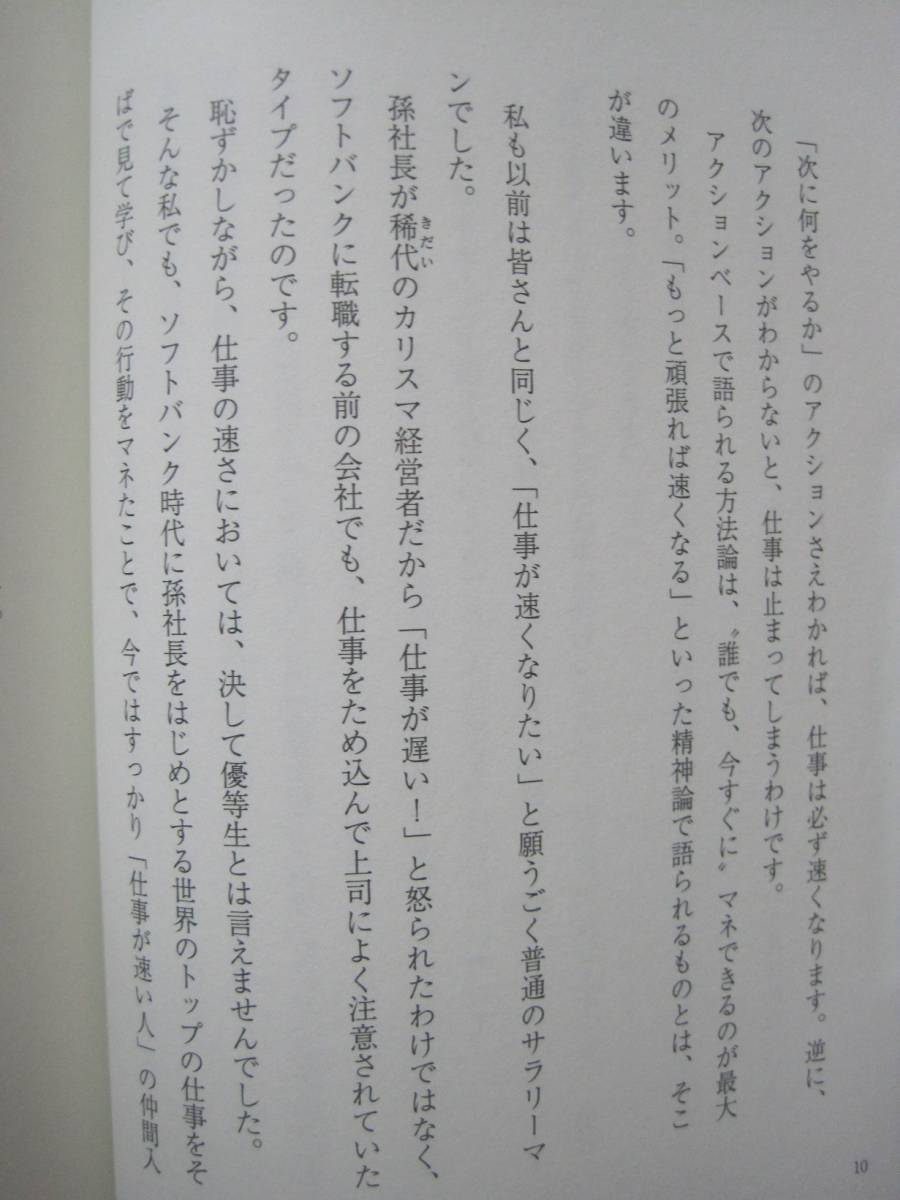 「次に何をやるか」のアクションさえわかれば、仕事は必ず速くなります。逆に、
次のアクションがわからないと、仕事は止まってしまうわけです。
アクションベースで語られる方法論は、〝誰でも、今すぐに〟マネできるのが最大
のメリット。「もっと頑張れば速くなる」といった精神論で語られるものとは、そこ
が違います。
私も以前は皆さんと同じく、「仕事が速くなりたい」と願うごく普通のサラリーマ
ンでした。
孫社長が稀代のカリスマ経営者だから「仕事が遅い!」と怒られたわけではなく、
きだい
ソフトバンクに転職する前の会社でも、仕事をため込んで上司によく注意されていた
タイプだったのです。
恥ずかしながら、仕事の速さにおいては、決して優等生とは言えませんでした。
そんな私でも、ソフトバンク時代に孫社長をはじめとする世界のトップの仕事をそ
ばで見て学び、その行動をマネたことで、今ではすっかり「仕事が速い人」の仲間入
10